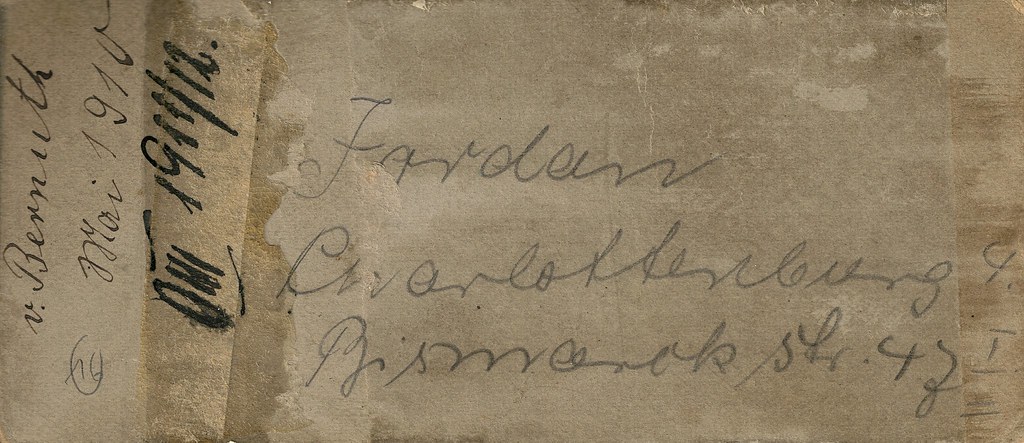 v. Bernuth
Mai 1910
1911/12.
Jordan
Charlottenburg 4.
Bismarckstr. 47 I